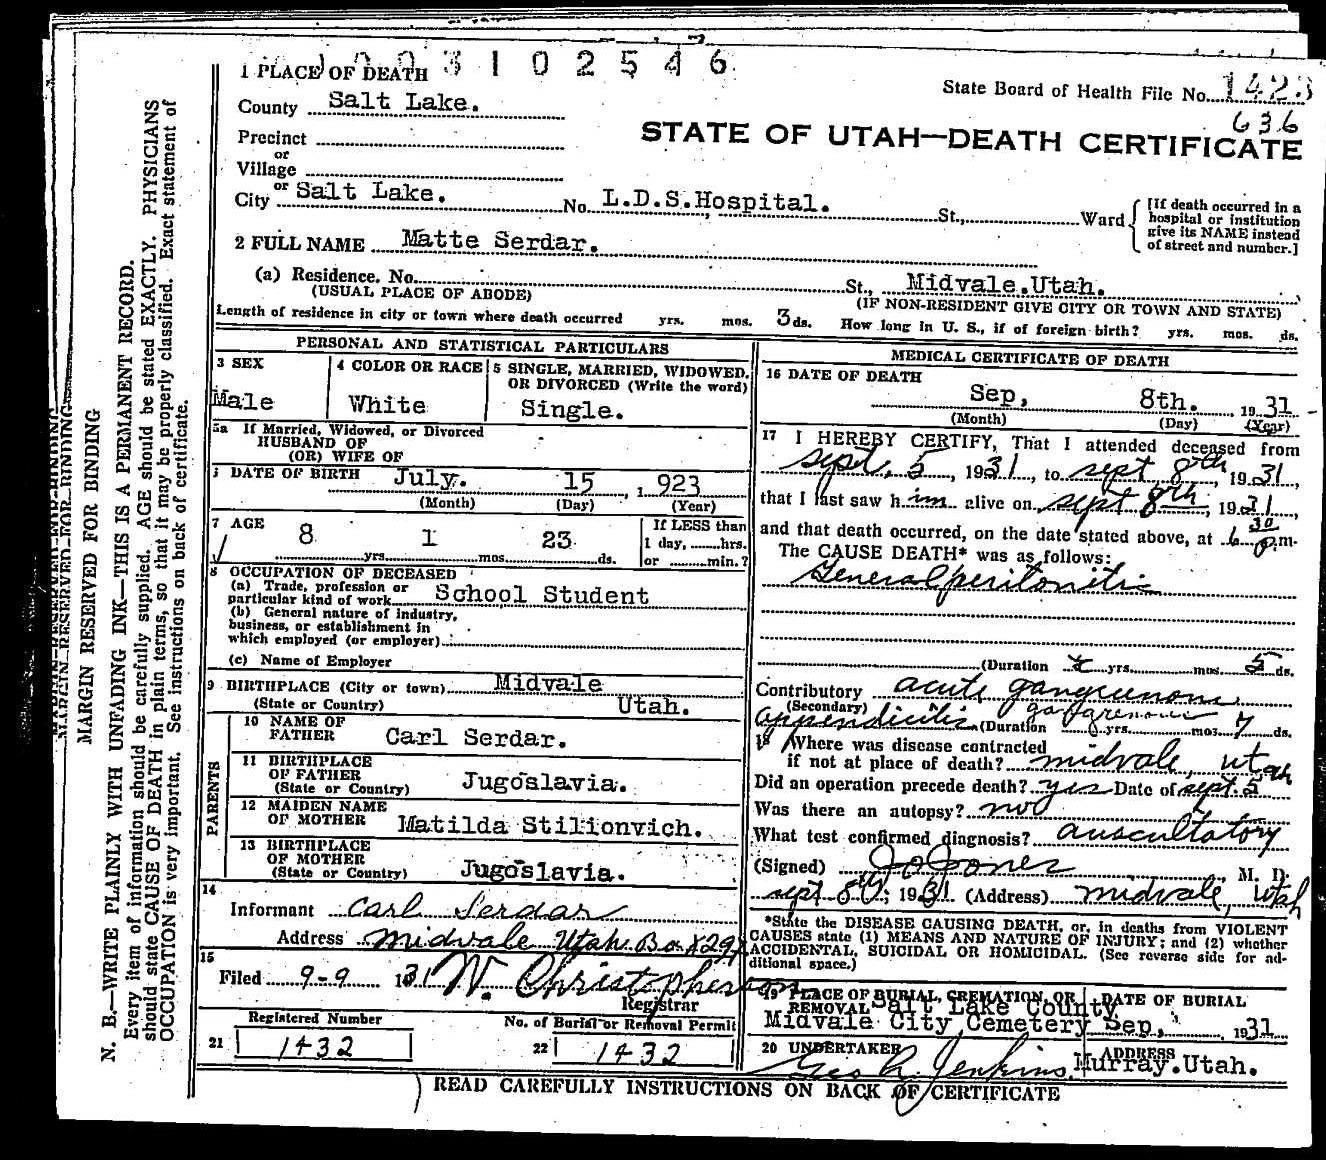 3 1 0 2 5 4 6
1 PLACE OF DEATH
State Board of Health File No. 1423
County Salt Lake.
636
STATE OF UTAH—DEATH CERTIFICATE
Precinct
or
Village
or
City Salt Lake. No. L.D.S.Hospital. St., Ward
[If death occurred in a
hospital or institution
give its NAME instead
of street and number.]
2 FULL NAME Matte Serdar.
(a) Residence. No. St., Midvale.Utah.
(USUAL PLACE OF ABODE) (IF NON-RESIDENT GIVE CITY OR TOWN AND STATE)
Length of residence in city or town where death occurred yrs. mos. 3 ds. How long in U. S., if of foreign birth? yrs. mos. ds.
PERSONAL AND STATISTICAL PARTICULARS
3 SEX
Male
4 COLOR OR RACE
White
5 SINGLE, MARRIED, WIDOWED,
OR DIVORCED (Write the word)
Single.
5a If Married, Widowed, or Divorced
HUSBAND OF
(OR) WIFE OF
DATE OF BIRTH July. 15, 1923
(Month) (Day) (Year)
7 AGE
8 yrs. 1 mos. 23 ds.
If LESS than
1 day, hrs.
or min.?
8 OCCUPATION OF DECEASED
(a) Trade, profession or
particular kind of work School Student
(b) General nature of industry,
business, or establishment in
which employed (or employer)
(c) Name of Employer
9 BIRTHPLACE (City or town) Midvale
(State or Country) Utah.
PARENTS
10 NAME OF
FATHER Carl Serdar.
11 BIRTHPLACE
OF FATHER
(State or Country) Jugoslavia.
12 MAIDEN NAME
OF MOTHER Matilda Stilionvich.
13 BIRTHPLACE
OF MOTHER
(State or Country) Jugoslavia.
14
Informant Carl Serdar
Address Midvale Utah Box 297
15
Filed 9-9 1931 W. Christopherson
Registrar
Registered Number
21 1432
No. of Burial or Removal Permit
22 1432
MEDICAL CERTIFICATE OF DEATH
16 DATE OF DEATH
Sep, 8th. 1931
(Month) (Day) (Year)
17 I HEREBY CERTIFY, That I attended deceased from
sept, 5, 1931, to sept 8th, 1931,
that I last saw h im alive on sept 8th, 1931,
and that death occurred, on the date stated above, at 6 30 p.m.
The CAUSE DEATH* was as follows:
General peritonitis
(Duration yrs. mos. 5 ds.
Contributory acute gangrenous
(Secondary) gangrenous
appendicitis (Duration yrs. mos. 7 ds.
18 Where was disease contracted
if not at place of death? midvale, utah
Did an operation precede death? yes Date of sept. 5
Was there an autopsy? no
What test confirmed diagnosis? auscultatory
(Signed) Jo Jones M. D.
sept 8th, 1931 (Address) midvale, Utah
*State the DISEASE CAUSING DEATH, or, in deaths from VIOLENT
CAUSES state (1) MEANS AND NATURE OF INJURY; and (2) whether
ACCIDENTAL, SUICIDAL OR HOMICIDAL. (See reverse side for ad-
ditional space.)
19 PLACE OF BURIAL, CREMATION, OR
REMOVAL Salt Lake County
Midvale City Cemetery
DATE OF BURIAL
Sep, 1931
20 UNDERTAKER
Geo A. Jenkins.
ADDRESS
Murray.Utah.
READ CAREFULLY INSTRUCTIONS ON BACK OF CERTIFICATE
MARGIN RESERVED FOR BINDING
MARGIN RESERVED FOR BINDING
N. B.—WRITE PLAINLY WITH UNFADING INK—THIS IS A PERMANENT RECORD.
Every item of information should be carefully supplied. AGE should be stated EXACTLY. PHYSICIANS
should state CAUSE OF DEATH in plain terms, so that it may be properly classified. Exact statement of
OCCUPATION is very important. See instructions on back of certificate.